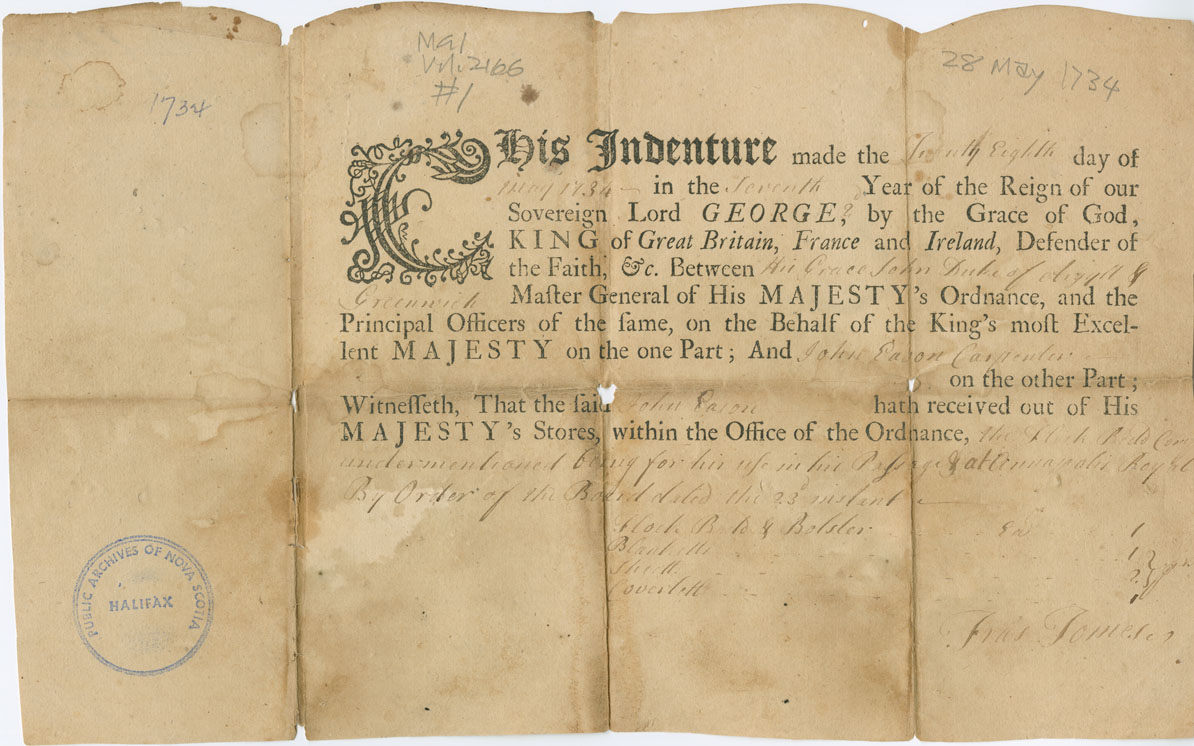 MG1
Vol. 2166
#1
28 May 1734
1734
THis Indenture made the Twenty Eighth day of
May 1734 in the Seventh Year of the Reign of our
Sovereign Lord GEORGE 2d by the Grace of God,
KING of Great Britain, France and Ireland, Defender of
the Faith, &c. Between His Grace John Duke of Argyll &
Greenwich Maſter General of His MAJESTY's Ordnance, and the
Principal Officers of the ſame, on the Behalf of the King's moſt Excel-
lent MAJESTY on the one Part; And John Eason Carpenter
on the other Part;
Witneſſeth, That the ſaid John Eason hath received out of His
MAJESTY's Stores, within the Office of the Ordnance, the Flock Bedd
undermentioned being for his use in his Passage & at Annapolis Royal
By Order of the Board dated the 23 instant
Flock Bedd & Bolster 1
Blanketts
Sheets
Coverlett 1
PUBLIC ARCHIVES OF NOVA SCOTIA
HALIFAX